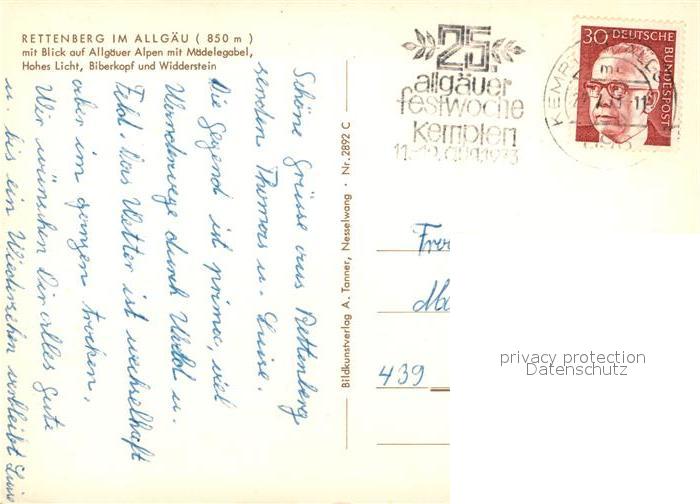 RETTENBERG IM ALLGÄU ( 850 m )
mit Blick auf Allgäuer Alpen mit Mädelegabel,
Hohes Licht, Biberkopf und Widderstein
Schöne Grüsse aus Rettenberg
senden Thomas u. Luise.
Die Gegend ist prima, viel
Wanderwege durch Wald u.
Feld. Das Wetter ist wechselhaft
aber im ganzen trocken.
Wir wünschen Dir alles Gute
u. bis ein Wiedersehen verbleibt Luise
Bildkunstverlag A. Tanner, Nesselwang · Nr. 2892 C
25.
allgäuer
festwoche
kempten
11.-19. aug. 1973
30 DEUTSCHE BUNDESPOST
439
privacy protection
Datenschutz